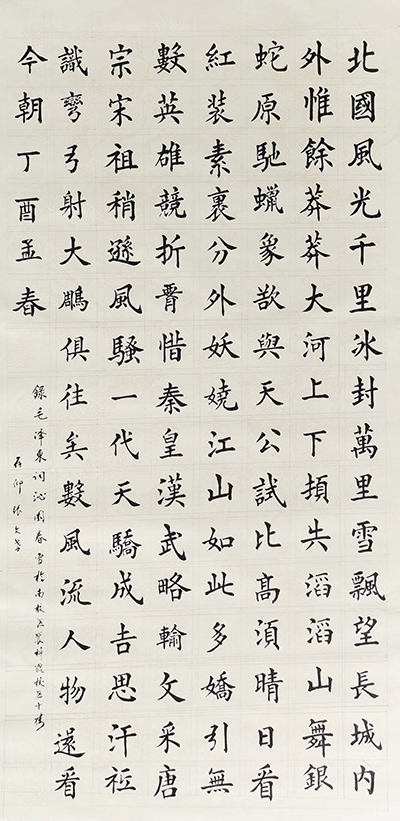 北國風光千里氷封萬里雪飄望長城内
外惟餘莽莽大河上下頓失滔滔山舞銀
蛇原馳蠟象欲與天公試比高須晴日看
紅裝素裹分外妖嬈江山如此多嬌引無
數英雄競折腰惜秦皇漢武略輸文采唐
宗宋祖稍遜風騷一代天驕成吉思汗祗
識彎弓射大鵰俱往矣數風流人物還看
今朝丁酉孟春
錄毛澤東詞沁園春雪於南